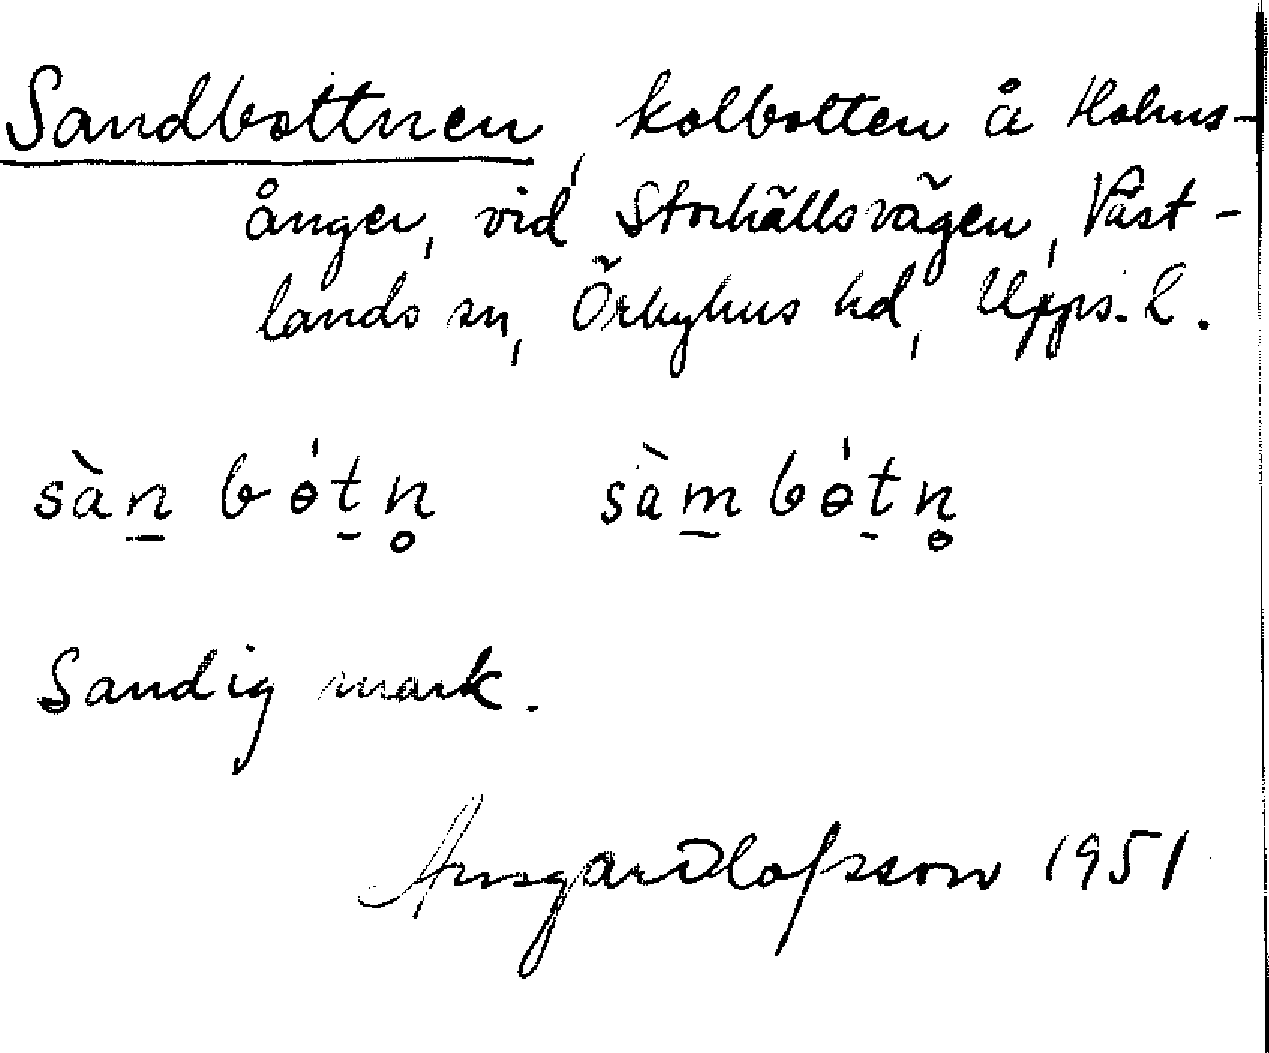 Sandbottnen, kolbotten å Holms-
ånger, vid Storhällsvägen, Väst-
lands sn, Örbyhus hd, Upps. l.
sàn̲ bɵ́t̠n̥ sàm̲bɵ́t̠n̥
Sandig mark.
Ansgar Olofsson 1951